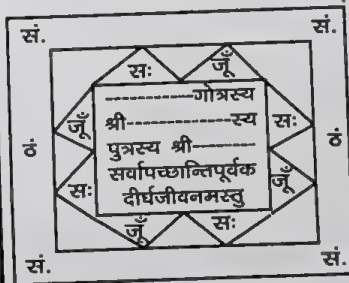 सं. सं.
सः जूँ
जूँ सः
----------गोत्रस्य
श्री---------------स्य
पुत्रस्य श्री----------
सर्वापच्छान्तिपूर्वक
दीर्घजीवनमस्तु
ठं ठं
सः जूँ
जूँ सः
सं. सं.